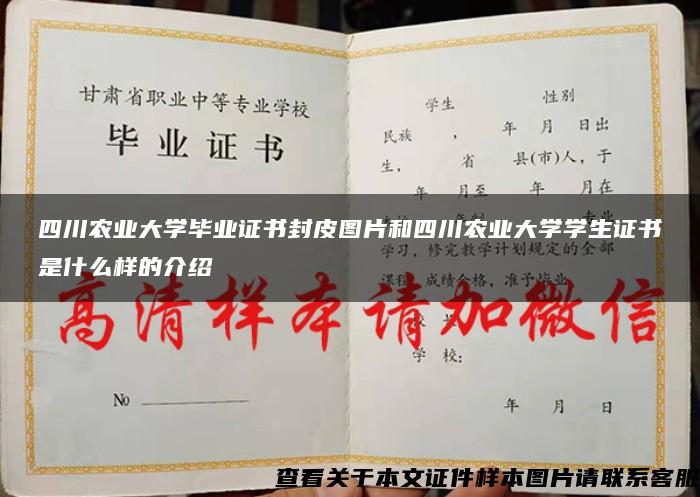 甘肃省职业中等专业学校
毕业证书
No
学生 性别
民族 ， 年 月 日出
生， 省 县(市)人，于
年 月至 年 月在
专业
四川农业大学毕业证书封皮图片和四川农业大学学生证书
是什么样的介绍
学习，修完教学计划规定的全部
课程，成绩合格，准予毕业
高清样本请加微信
学 校：
年 月 日
查看关于本文证件样本图片请联系客服